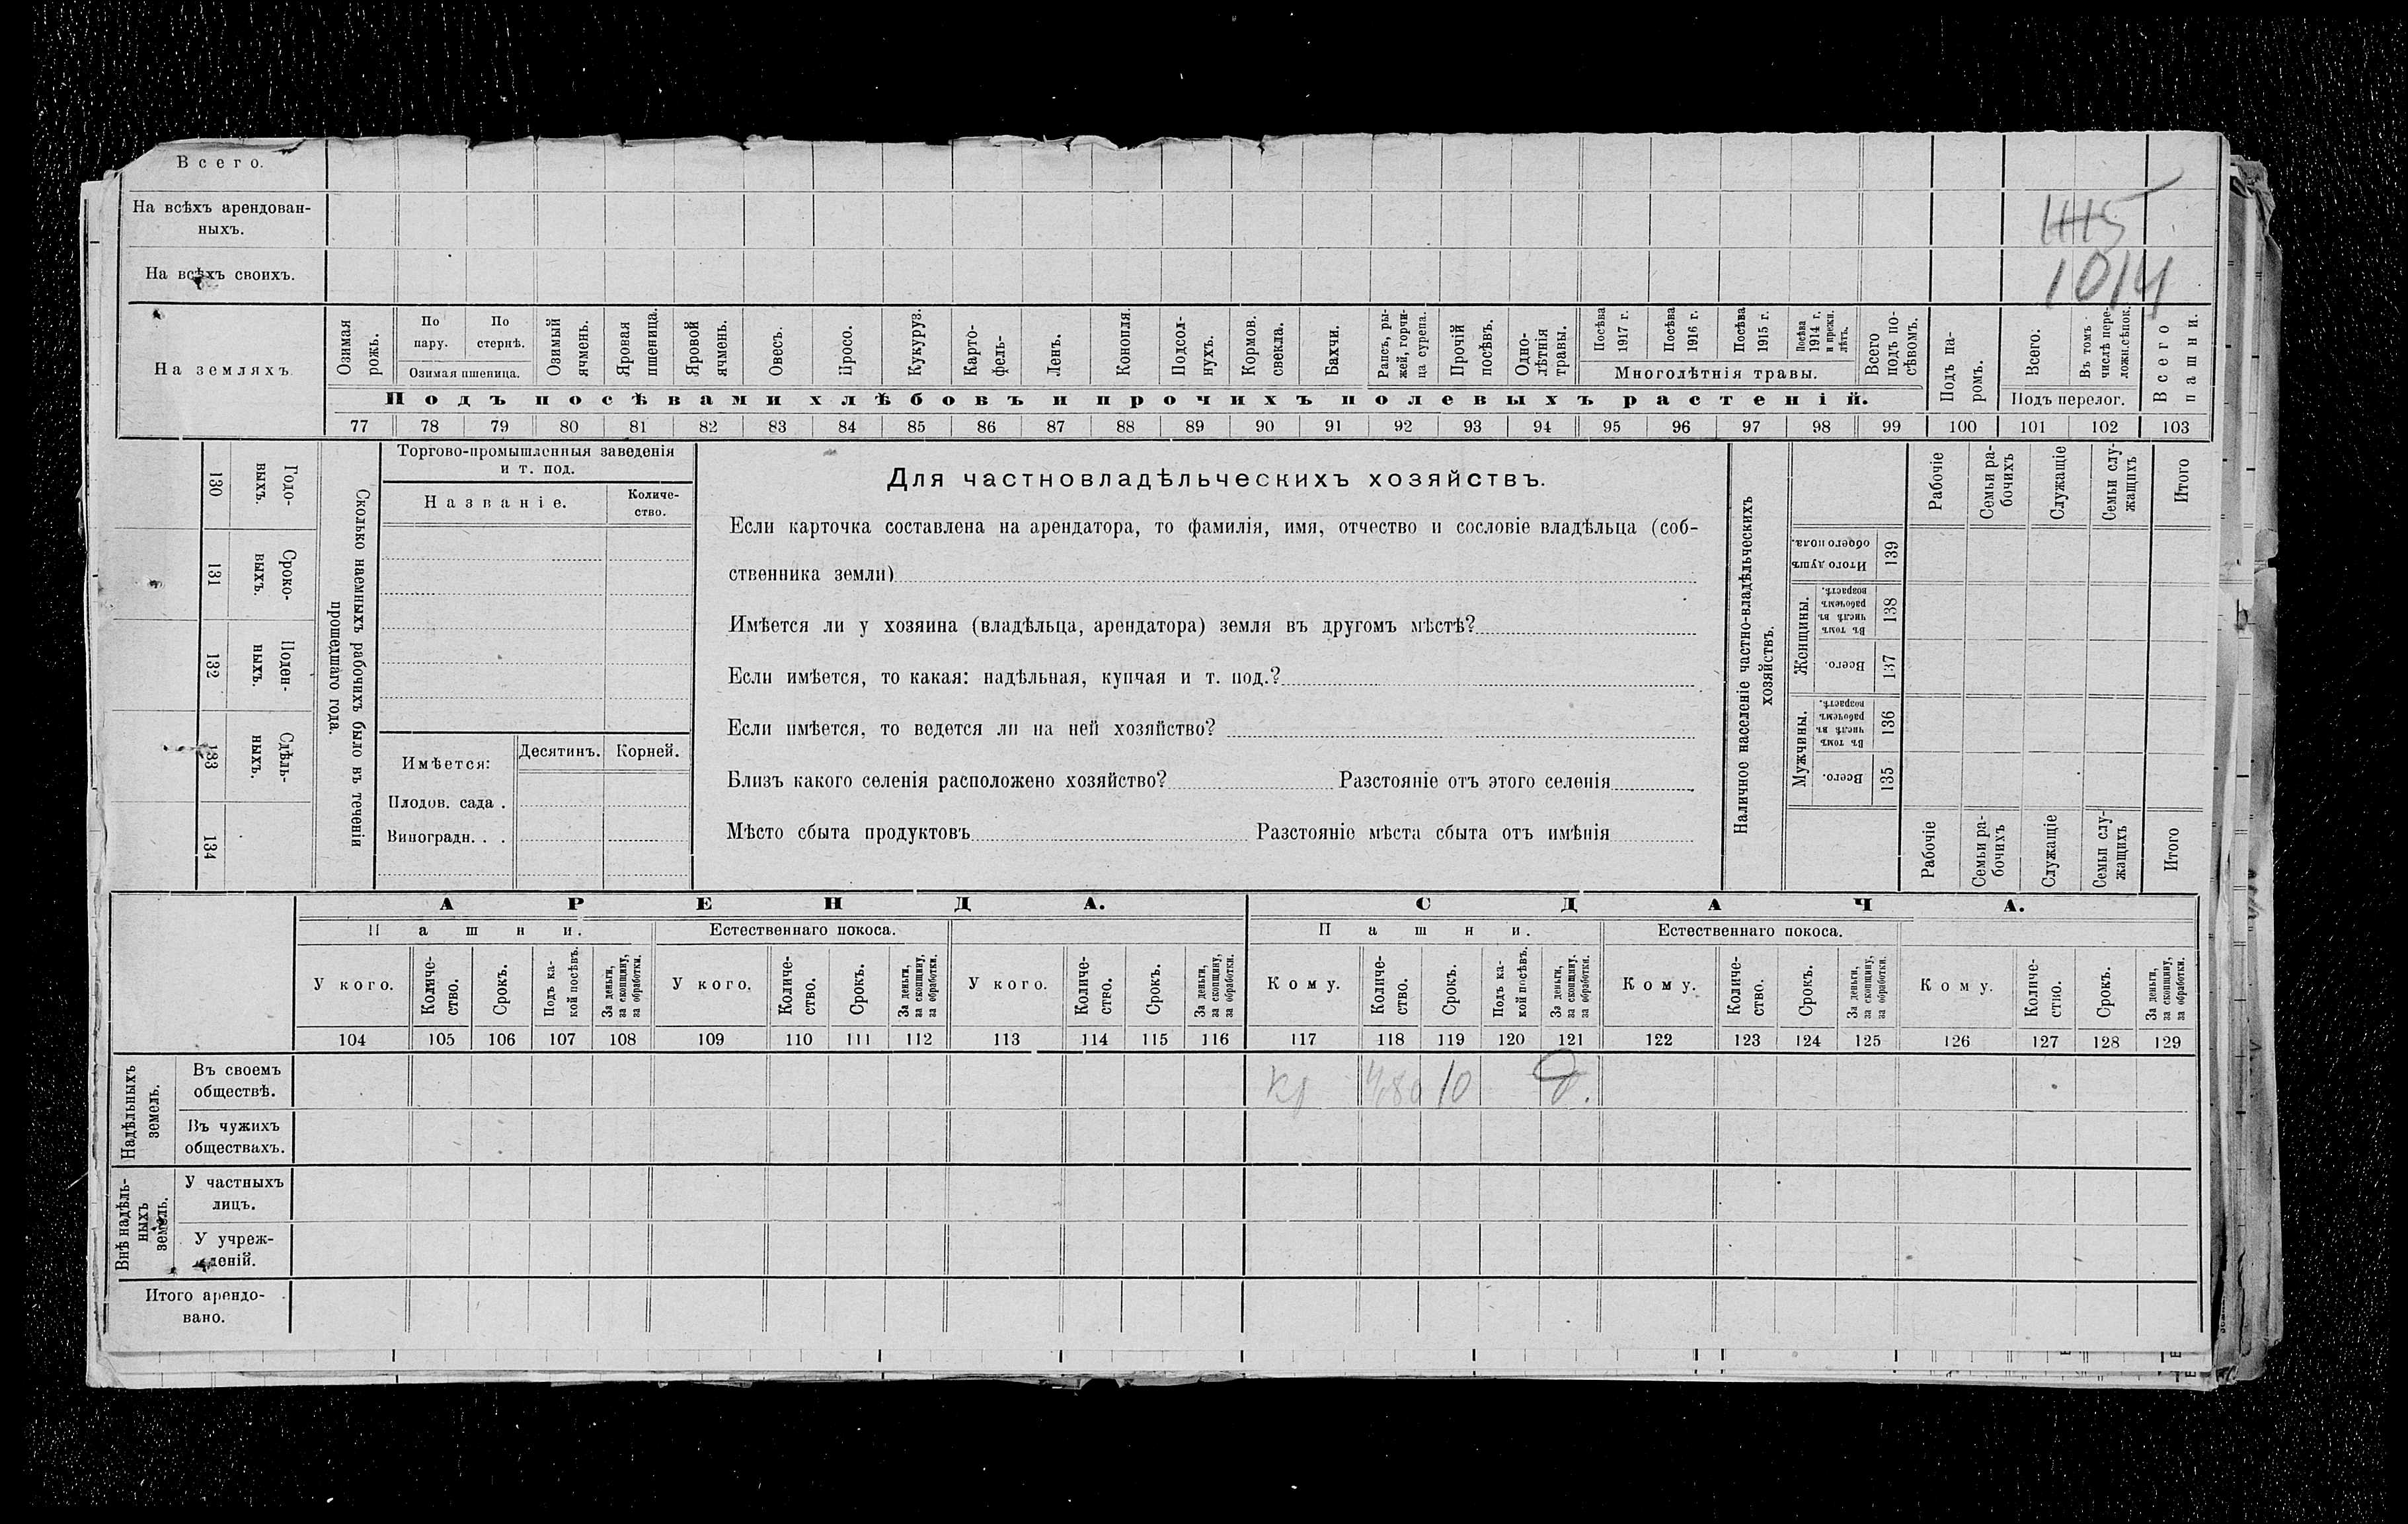 Всего.
На всѣхъ арендован-
ныхъ.
На всѣхъ своихъ.
1115
1014
На земляхъ
Озимая рожь.
По пару.
По стернѣ.
Озимая пшеница.
Озимый ячмень.
Яровая пшеница.
Яровой ячмень.
Овесъ.
Просо.
Кукуруз.
Карто-
фель-
Ленъ.
Конопля.
Подсол-
нухъ.
Кормов. свекла.
Бахчи.
Рапсъ, ры-
жей, горчи-
ца сурепа.
Прочій посѣвъ.
Одно-
лѣтнія травы.
Посѣва 1917 г.
Посѣва 1916 г.
Посѣва 1915 г.
Посѣва 1914 г. и прежн. лѣтъ.
Многолѣтнія травы.
Всего подъ по-
сѣвомъ.
Подъ па-
ромъ.
Всего.
Въ томъ числѣ пере-
ложн. сѣнок.
Подъ перелог.
Всего пашни.
Подъ посѣвами хлѣбовъ и прочихъ полевыхъ растеній.
77 78 79 80 81 82 83 84 85 86 87 88 89 90 91 92 93 94 95 96 97 98 99 100 101 102 103
Годо-
выхъ.
130
Сроко-
выхъ.
131
Поден-
ныхъ.
132
Сдѣль-
ныхъ.
133
134
Сколько наемныхъ рабочихъ было въ теченіи
прошедшаго года.
Торгово-промышленныя заведенія
и т. под.
Названіе.
Количе-
ство.
Имѣется:
Десятинъ.
Корней.
Плодов. сада .
Виноградн. . .
Для частновладѣльческихъ хозяйствъ.
Если карточка составлена на арендатора, то фамилія, имя, отчество и сословіе владѣльца (соб-
ственника земли)
Имѣется ли у хозяина (владѣльца, арендатора) земля въ другомъ мѣстѣ?
Если имѣется, то какая: надѣльная, купчая и т. под.?
Если имѣется, то ведется ли на ней хозяйство?
Близъ какого селенія расположено хозяйство? Разстояніе отъ этого селенія
Мѣсто сбыта продуктовъ Разстояніе мѣста сбыта отъ имѣнія
Наличное населеніе частно-владѣльческихъ
хозяйствъ.
Рабочіе
Семьи ра-
бочихъ
Служащіе
Семьи слу-
жащихъ
Итого
Итого душъ обоего пола.
139
Женщины.
Въ томъ числѣ въ рабочемъ возрастѣ.
138
Всего.
137
Мужчины.
Въ томъ числѣ въ рабочемъ возрастѣ.
136
Всего.
135
Рабочіе
Семьи ра-
бочихъ
Служащіе
Семьи слу-
жащихъ
Итого
АРЕНДА.
СДАЧА.
Пашни.
Естественнаго покоса.
Пашни.
Естественнаго покоса.
У кого.
Количе-
ство.
Срокъ.
Подъ ка-
кой посѣвъ.
За деньги,
за скопщину,
за обработки.
У кого.
Количе-
ство.
Срокъ.
За деньги,
за скопщину,
за обработки.
У кого.
Количе-
ство.
Срокъ.
За деньги,
за скопщину,
за обработки.
Кому.
Количе-
ство.
Срокъ.
Подъ ка-
кой посѣвъ.
За деньги,
за скопщину.
за обработки.
Кому.
Количе-
ство.
Срокъ.
За деньги,
за скопщину,
за обработки.
Кому.
Количе-
ство.
Срокъ.
За деньги,
за скопщину,
за обработки.
104 105 106 107 108 109 110 111 112 113 114 115 116 117 118 119 120 121 122 123 124 125 126 127 128 129
Надѣльныхъ
земель.
Въ своемъ
обществѣ.
Кр 10 д.
Въ чужихъ
обществахъ.
Внѣ надѣль-
ныхъ
земель.
У частныхъ
лицъ.
У учреж-
деній.
Итого арендо-
вано.